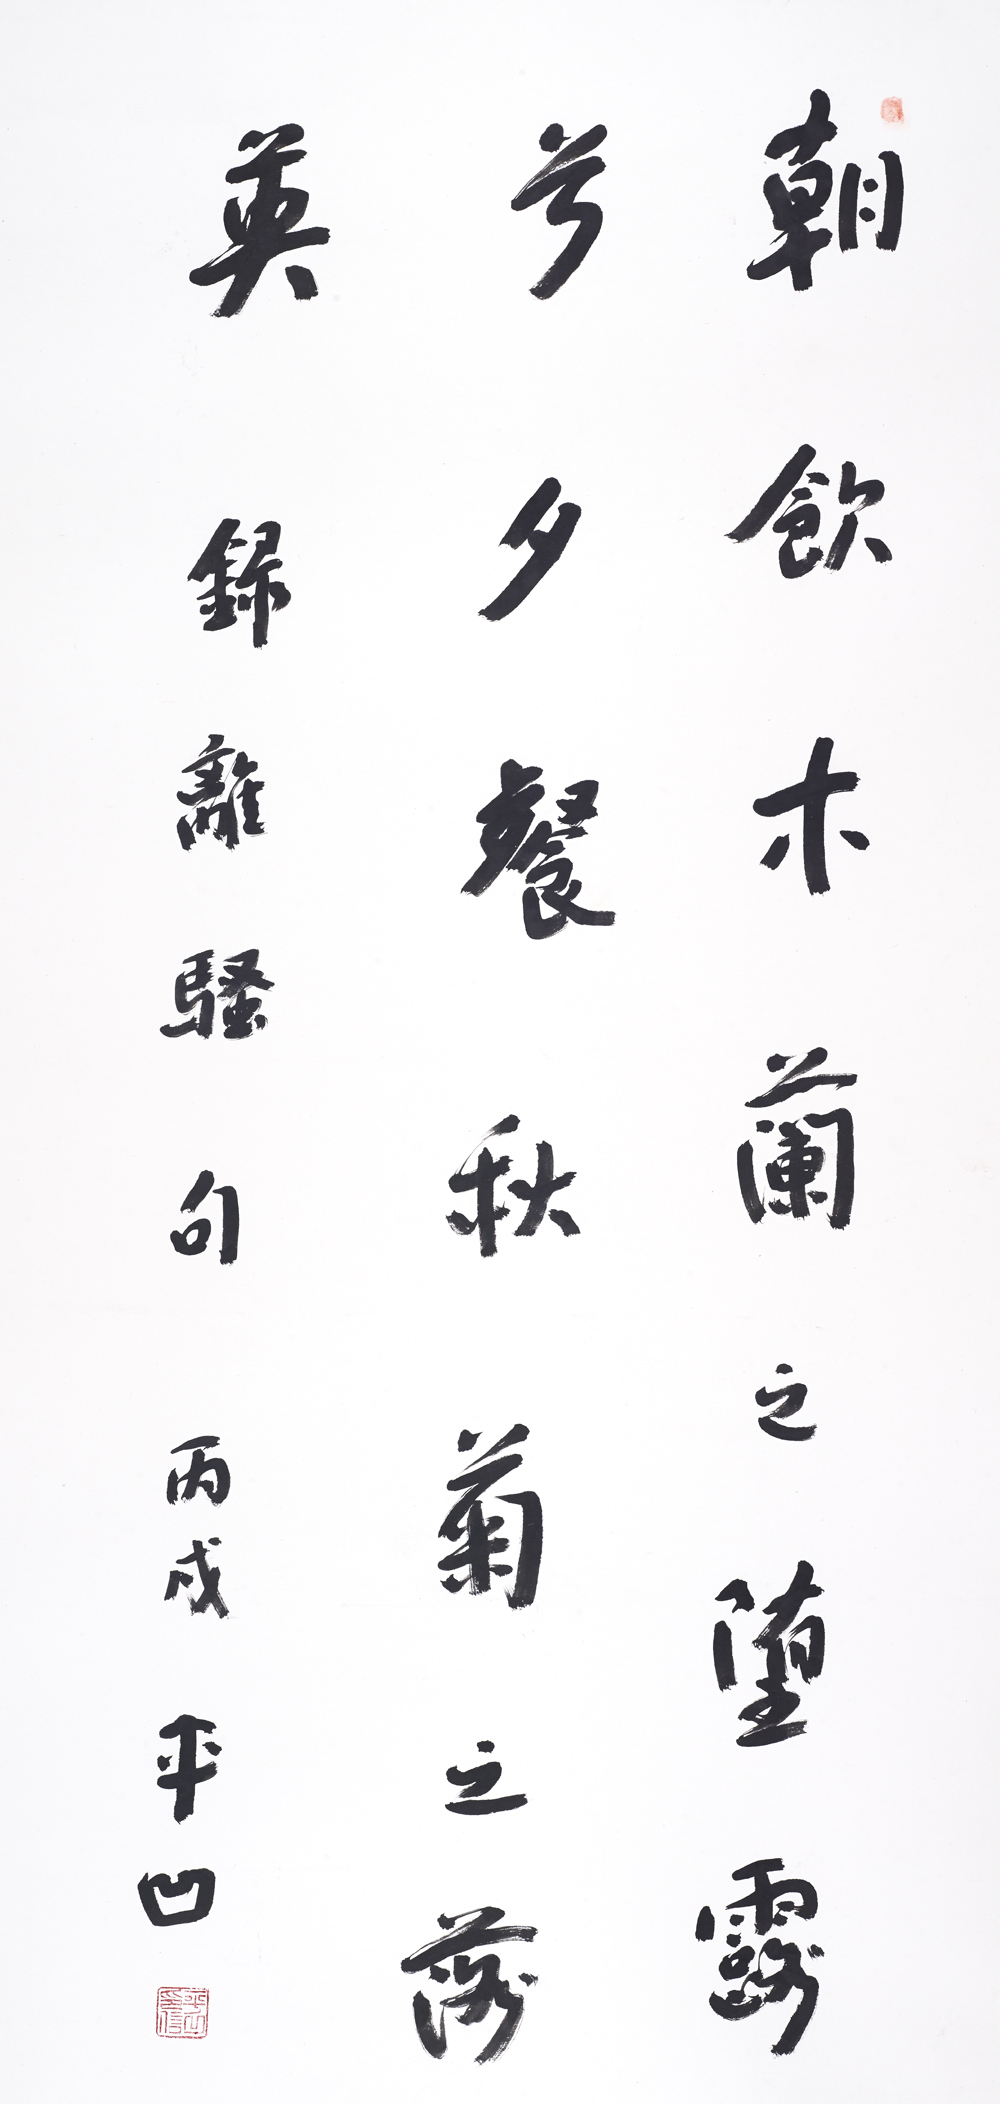 朝飲木蘭之墮露
兮夕餐秋菊之落
英 錄離騷句 丙戌 平凹